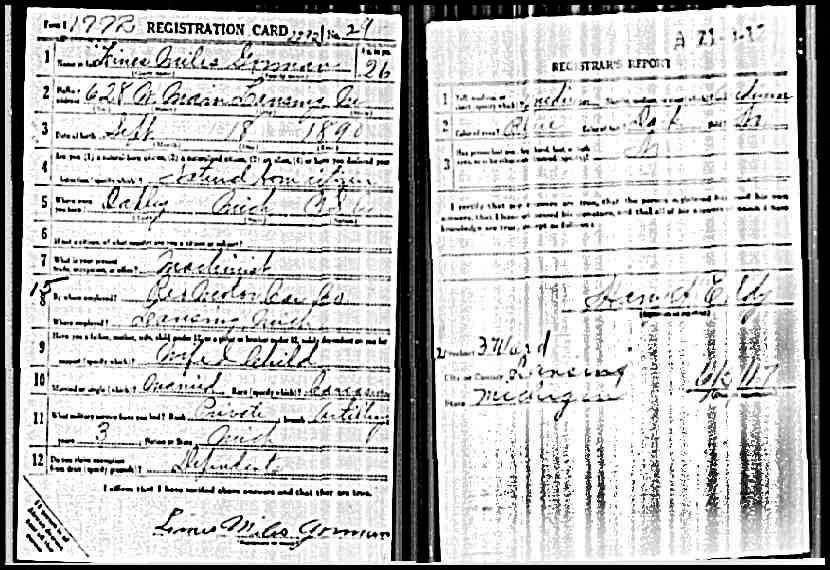 Form 1 1772 REGISTRATION CARD No. 29
1 Name in full Miles Gorman Age, in yrs. 26
2 Home address 628 W. Main Lansing
3 Date of birth Sept 18 1890
4 Are you (1) a natural born citizen, (2) a naturalized citizen, (3) an alien, (4) or have you declared your
intention (specify which)? born citizen
5 Where were you born? Oakley Mich
6
If not a citizen, of what country are you a citizen or subject?
7 What is your present trade, occupation, or office? Machinist
15
8 By whom employed? Reo Motor Car Co
Where employed? Lansing Mich
9 Have you a father, mother, wife, child under 12, or a sister or brother under 12, solely dependent on you for
support (specify which)? Wife & Child
10 Married or single (which)? Married Race (specify which)?
11 What military service have you had? Rank Private branch Artillery
years 3 Nation or State Mich
12 Do you claim exemption from draft (specify grounds)? Dependents
I affirm that I have verified above answers and that they are true.
Miles Gorman
REGISTRAR'S REPORT
1 Tall, medium, or short (specify which)? Medium Slender, medium, or stout (which)? Medium
2 Color of eyes? Blue Color of hair? Dark Bald? No
3 Has person lost arm, leg, hand, foot, or both No
I certify that my answers are true, that the person registered has read his own
answers, that I have witnessed his signature, and that all of his answers of which I have
knowledge are true, except as follows:
(Signature of registrar)
Precinct 3 Ward
City or County Lansing
State Michigan